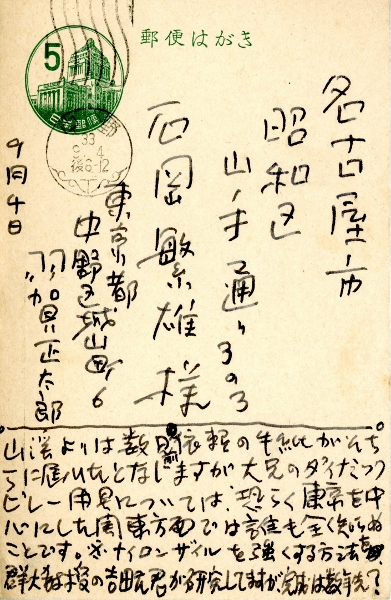 郵便はがき
5
日本郵便
野
33
9.4
後6-12
名古屋市
昭和区
山手通り3の3
石岡繁雄様
9月4日
東京都
中野区城山町6
加賀正太郎
山渓よりは数日前依頼の手紙がそち
らに届いたとなじますが大兄のダイナミック
ビレー用具については、恐らく東京を中
心にした関東方面では誰も全く知らぬ
ことです。ナイロンザイルを強くする方法を
群大教授の吉田君が研究してますが完成は数年先?